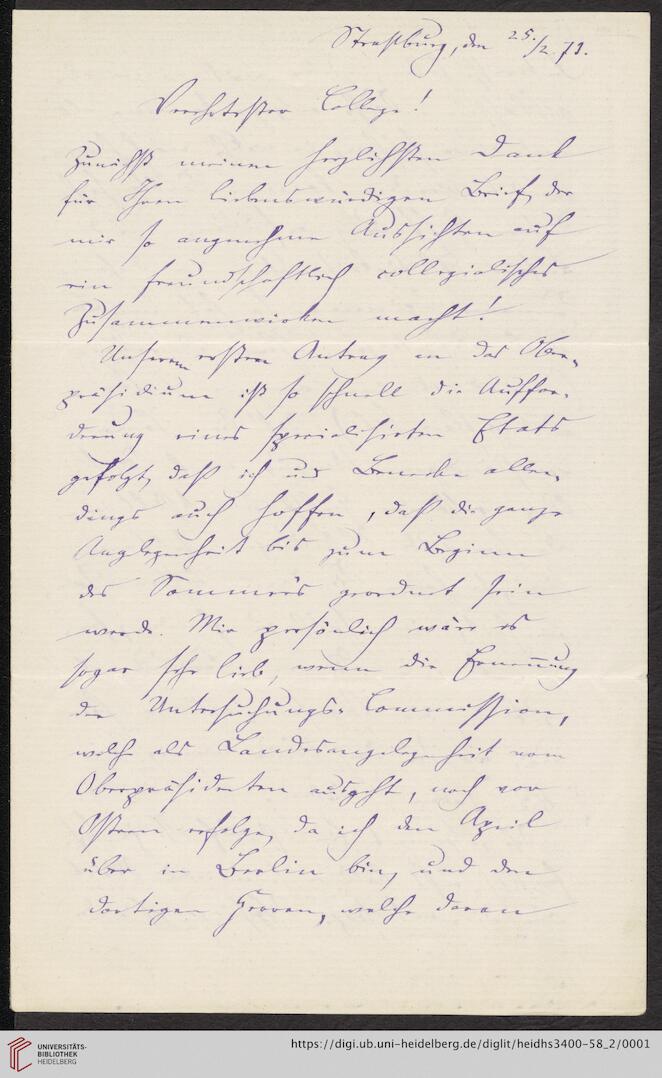 Straßburg, den 25./2. 73.
Verehrtester College!
Zunächst meinen herzlichsten Dank
für Ihren liebenswürdigen Brief, der
mir so angenehme Aussichten auf
ein freundschaftlich collegialisches
Zusammenwirken macht!
Unserem ersten Antrag an das Ober-
präsidium ist so schnell die Auffor-
derung eines specialisirten Etats
gefolgt, daß ich und Benecke aller-
dings auch hoffen, daß die ganze
Angelegenheit bis zum Beginn
des Sommers geordnet sein
werde. Mir persönlich wäre es
sogar sehr lieb, wenn die Ernennung
der Untersuchungs-Commission,
welche als Landesangelegenheit vom
Oberpräsidenten ausgeht, noch vor
Ostern erfolge, da ich den April
über in Berlin bin, und den
dortigen Herren, welche daran
UNIVERSITÄTS-
BIBLIOTHEK
HEIDELBERG
https://digi.ub.uni-heidelberg.de/diglit/heidhs3400-58_2/0001